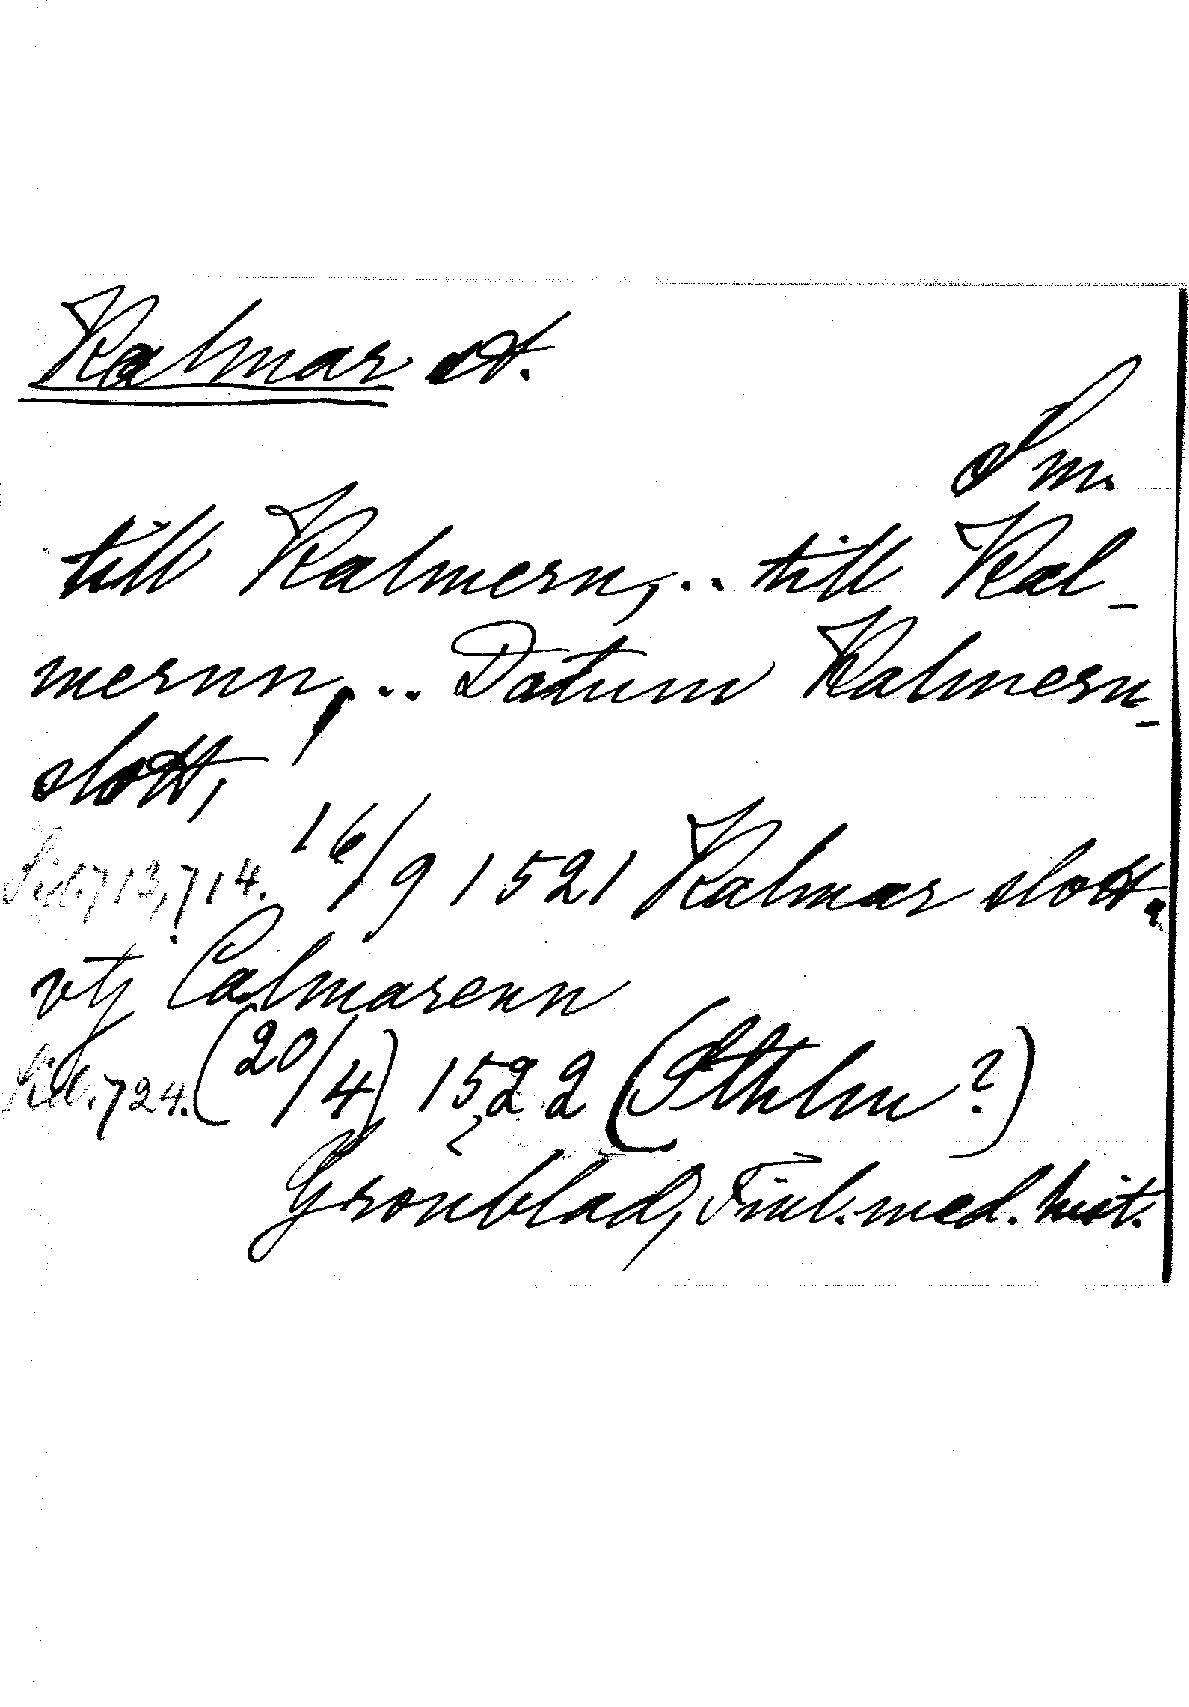 Kalmar st.
Sm.
till Kalmern, .. till Kal-
mernn, .. Datum Kalmern-
slott,
Sid. 713, 714. 16/9 1521 Kalmar slott.
vtj Calmarenn
Sid. 724. (20/4) 1522 (Sthlm ?)
Grönblad, Finl. med. hist.